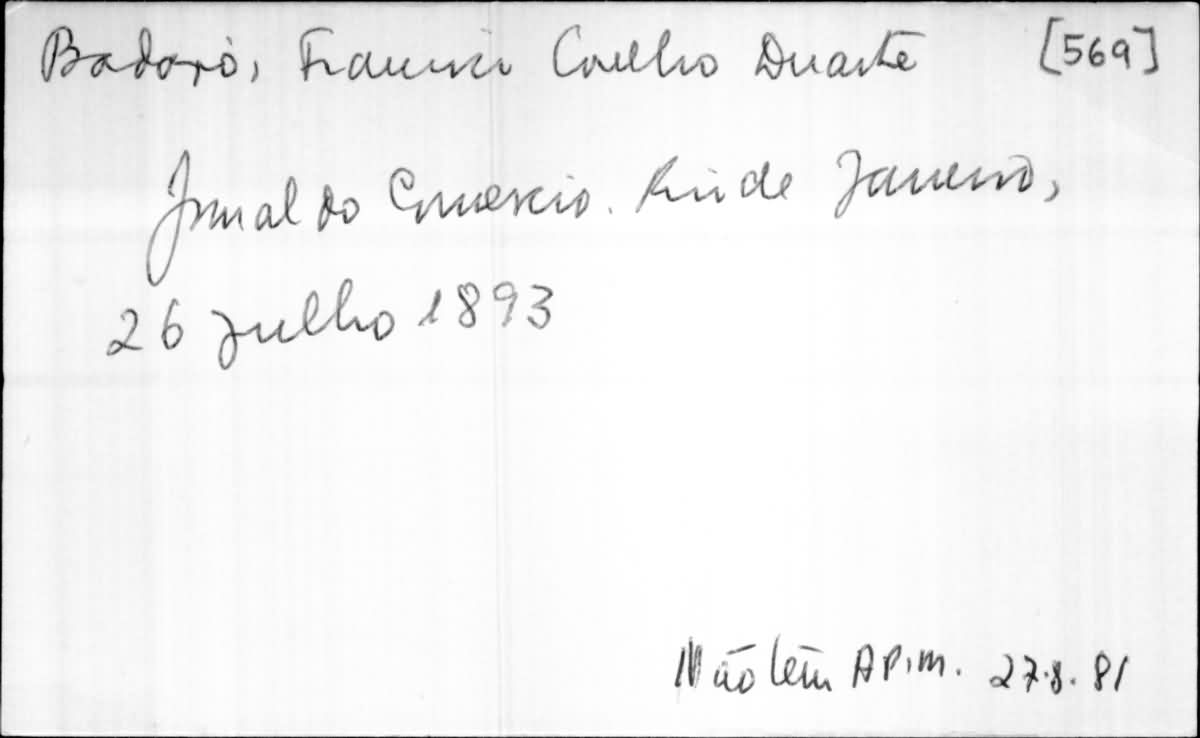 Badaró, Francisco Coelho Duarte [569]
Jornal do Comercio. Rio de Janeiro,
26 julho 1893
Não tem A P. M. 27.8.81